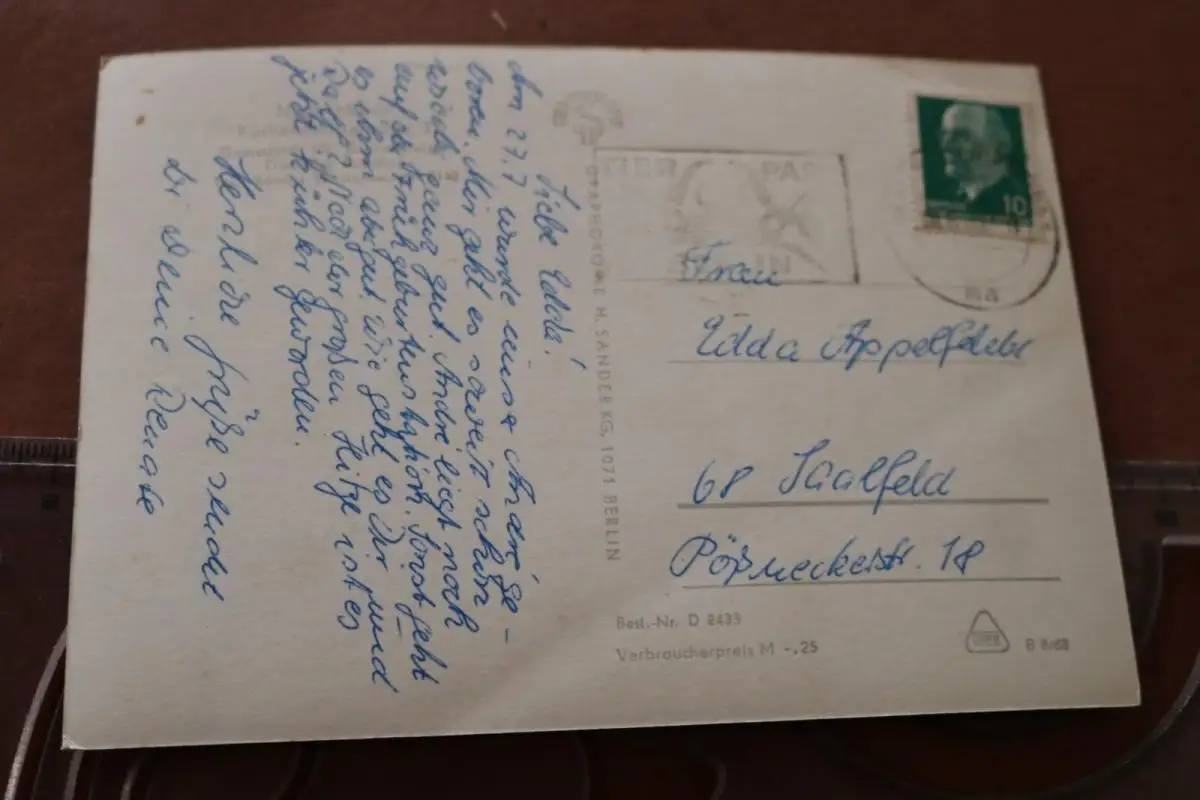 Liebe Edda!
Am 27.7 wurde unser André ge-
boren. Mir geht es soweit schon
wieder ganz gut. André liegt noch
auf der Frühgeburtenstation. Sonst geht
es ihm aber gut. Wie geht es Dir und
Ralf? Nach der großen Hitze ist es
jetzt kühler geworden.
Herzliche Grüße sendet
Dir Deine Renate
GRAPHOKOPIE H. SANDER KG, 1071 BERLIN
10
Frau
Edda
68 Saalfeld
Pößneckerstr. 18
Best.-Nr. D 2433
Verbraucherpreis M -,25
B 8/68